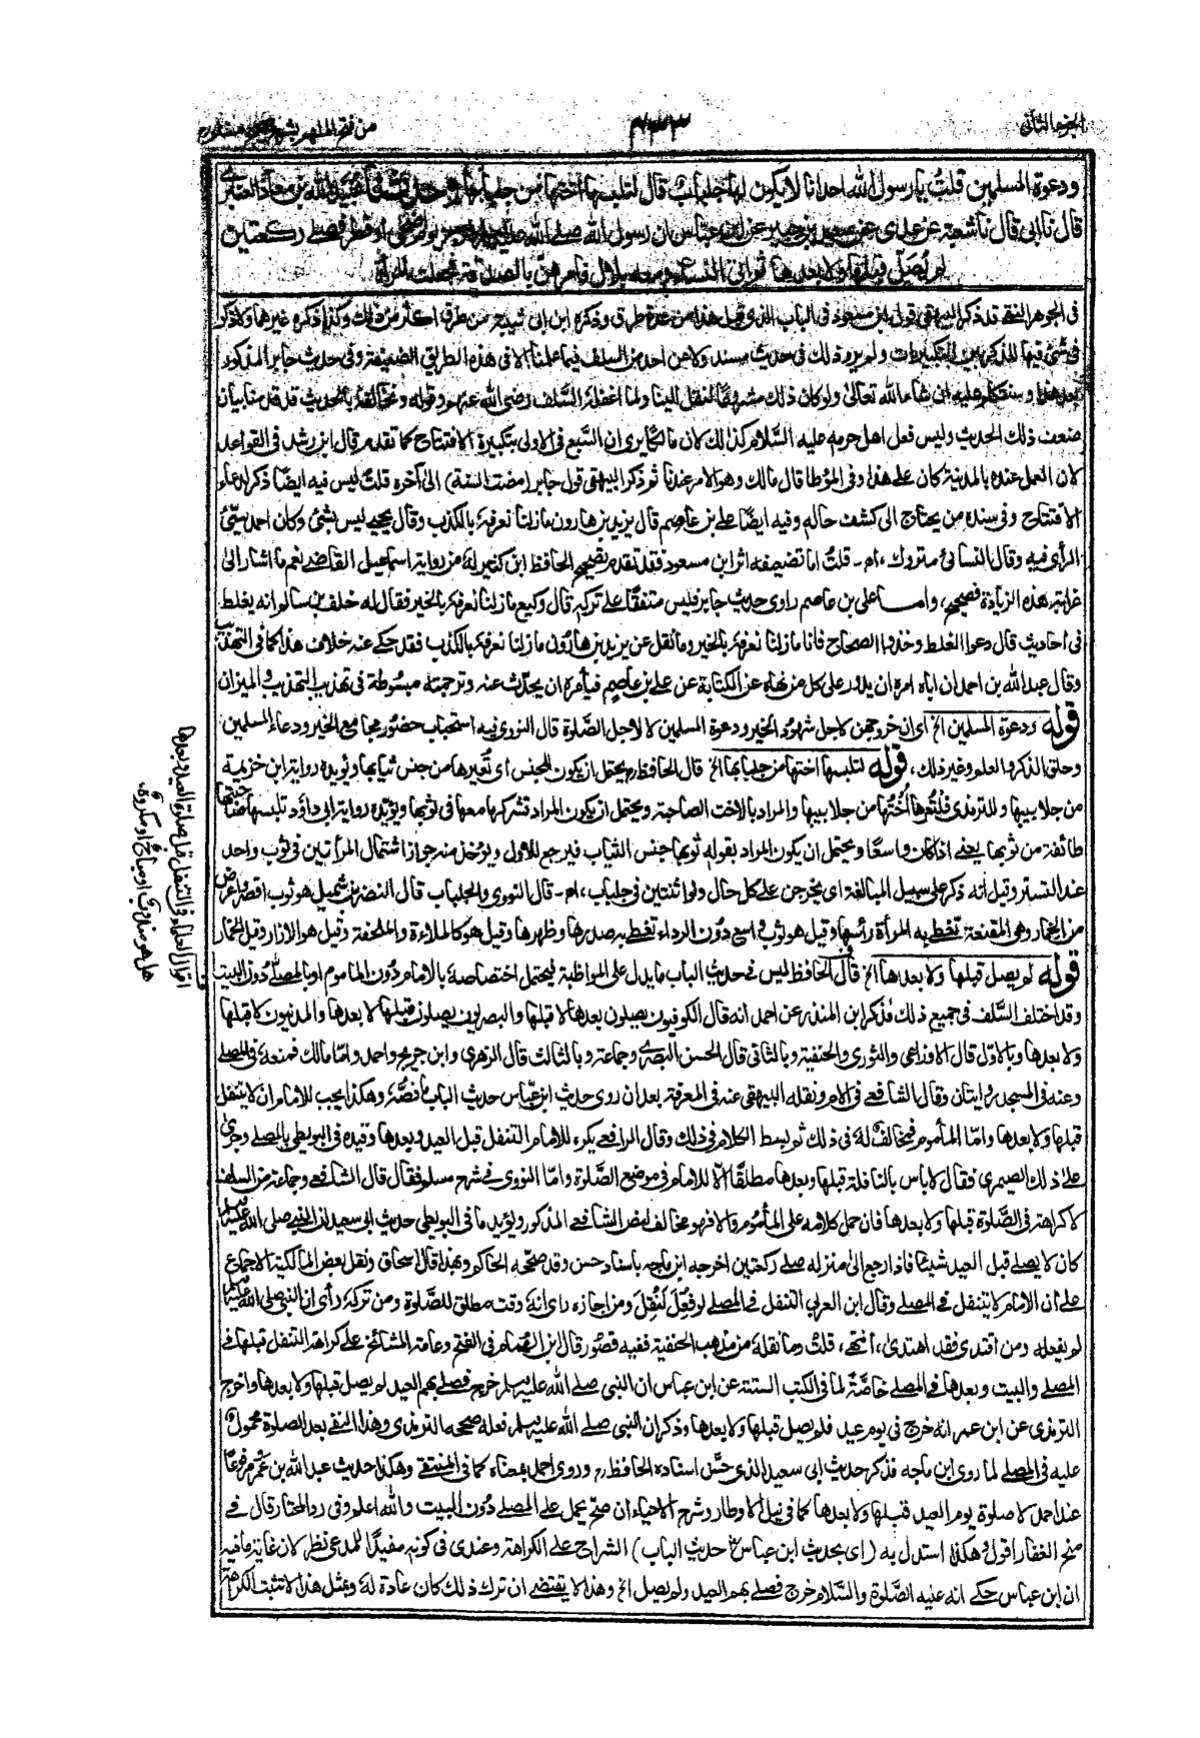 الجزء الثاني
٤٣٣
من فتح الملهم بشرح صحيح مسلم
ودعوة المسلمين قلت يا رسول الله احدانا لا يكون لها جلباب قال لتلبسها اختها من جلبابها وحدثنا عبيد الله بن معاذ العنبرى
قال نا ابى قال نا شعبة عن عدى عن سعيد بن جبير عن ابن عباس ان رسول الله صلى الله عليه وسلم خرج يوم اضحى او فطر فصلى ركعتين
لم يصل قبلها ولا بعدها ثم اتى النساء ومعه بلال فامرهن بالصدقة فجعلت المرأة
فى الجوهر النقى قد ذكر البيهقى قول ابن مسعود فى الباب الذى قبل هذا من عدة طرق وذكره ابن ابى شيبة من طرق اكثر من ذلك وكذا ذكره غيرهما ولا ذكر
فى شئ فيها للذكر بين التكبيرات ولم يرو ذلك فى حديث مسند ولا عن احد من السلف فيما علمنا الا فى هذه الطريق الضعيفة وفى حديث جابر المذكور
بعد هذا وسنتكلم عليه ان شاء الله تعالى ولو كان ذلك مشروعا لنقل الينا ولما اغفله السلف رضى الله عنهم وقوله ونخالفه بالحديث قد قدمنا بيان
ضعف ذلك الحديث وليس فعل اهل حرمه عليه السلام كذلك كان مالكا يرى ان السبع فى الاولى بتكبيرة الافتتاح كما تقدم قال ابن رشد فى القواعد
لان العمل عنده بالمدينة كان على هذا وفى المؤطا قال مالك وهو الامر عندنا ثم ذكر البيهقى قول جابر (مضت السنة) الى آخره قلت ليس فيه ايضا ذكر دعاء
الافتتاح وفى سنده من يحتاج الى كشف حاله وفيه ايضا على بن عاصم قال يزيد بن هارون مازلنا نعرفه بالكذب وقال يحيى ليس بشئ وكان احمد سيئ
الرأى فيه وقال النسائى متروك ، اه - قلت اما تضعيفه اثر ابن مسعود فقد تقدم تصحيح الحافظ ابن كثير له من رواية اسماعيل القاضى نعم ما اشار الى
غرابة هذه الزيادة فصحيح ، واما على بن عاصم راوى حديث جابر فليس متفقا على تركه قال وكيع مازلنا نعرفه بالخير فقال له خلف بن سالم انه يغلط
فى احاديث قال دعوا الغلط وخذوا الصحاح فانا مازلنا نعرفه بالخير وما نقل عن يزيد بن هارون مازلنا نعرفه بالكذب فقد حكى عنه خلاف هذا كما فى التهذيب
وقال عبد الله بن احمد ان اباه امره ان يدور على كل من نهاه عن الكتابة عن على بن عاصم فيأمره ان يحدث عنه وترجمته مبسوطة فى تهذيب التهذيب والميزان
قوله ودعوة المسلمين الخ اى ان خروجهن لاجل شهود الخير ودعوة المسلمين لا لاجل الصلوة قال النووى فيه استحباب حضور مجامع الخير ودعاء المسلمين
وحلق الذكر والعلم وغير ذلك ، قوله لتلبسها اختها من جلبابها الخ قال الحافظ يحتمل ان يكون للجنس اى تعيرها من جنس ثيابها ويؤيده رواية ابن خزيمة
من جلابيبها وللترمذى فلتعرها اختها من جلابيبها والمراد بالاخت الصاحبة ويحتمل ان يكون المراد تشركها معها فى ثوبها ويؤيده رواية ابى داؤد تلبسها صاحبتها
طائفة من ثوبها يعنى اذا كان واسعا ويحتمل ان يكون المراد بقوله ثوبها جنس الثياب فيرجع للاول ويؤخذ منه جواز اشتمال المرأتين فى ثوب واحد
عند التستر وقيل انه ذكر على سبيل المبالغة اى يخرجن على كل حال ولو اثنتين فى جلباب ، اه - قال النووى والجلباب قال النضر بن شميل هو ثوب اقصر واعرض
من الخمار وهى المقنعة تغطى به المرأة رأسها وقيل هو ثوب واسع دون الرداء تغطى به صدرها وظهرها وقيل هو كالملاءة والملحفة وقيل هو الازار وقيل الخمار
قوله لم يصل قبلها ولا بعدها الخ قال الحافظ ليس فى حديث الباب ما يدل على المواظبة فيحتمل اختصاصه بالامام دون الماموم او بالمصلى دون البيت
وقد اختلف السلف فى جميع ذلك فذكر ابن المنذر عن احمد انه قال الكوفيون يصلون بعدها لا قبلها والبصريون يصلون قبلها لا بعدها والمدنيون لا قبلها
ولا بعدها وبالاول قال الاوزاعى والثورى والحنفية وبالثانى قال الحسن البصرى وجماعة وبالثالث قال الزهرى وابن جريج واحمد واما مالك فمنعه فى المصلى
وعنه فى المسجد روايتان وقال الشافعى فى الام ونقله البيهقى عنه فى المعرفة بعد ان روى حديث ابن عباس حديث الباب ما نصه وهكذا يجب للامام ان لا يتنفل
قبلها ولا بعدها واما المأموم فمخالف له فى ذلك ثم بسط الكلام فى ذلك وقال الرافعى يكره للامام التنفل قبل العيد وبعدها وقيده فى البويطى بالمصلى وجرى
على ذلك الصيمرى فقال لا باس بالنافلة قبلها وبعدها مطلقا الا للامام فى موضع الصلوة واما النووى فى شرح مسلم فقال قال الشافعى وجماعة من السلف
لا كراهة فى الصلوة قبلها ولا بعدها فان حمل كلامه على المأموم والا فهو مخالف لنص الشافعى المذكور ويؤيد ما فى البويطى حديث ابى سعيد ان النبى صلى الله عليه وسلم
كان لا يصلى قبل العيد شيئا فاذا رجع الى منزله صلى ركعتين اخرجه ابن ماجه باسناد حسن وقد صححه الحاكم وبهذا قال اسحاق ونقل بعض المالكية الاجماع
على ان الامام لا يتنفل فى المصلى وقال ابن العربى التنفل فى المصلى لو فعل لنقل ومن اجازه راى انه وقت مطلق للصلوة ومن تركه رأى ان النبى صلى الله عليه وسلم
لم يفعله ومن اقتدى فقد اهتدى ، انتهى ، قلت وما نقله من مذهب الحنفية ففيه قصور قال ابن الهمام فى الفتح وعامة المشائخ على كراهة التنفل قبلها فى
المصلى والبيت وبعدها فى المصلى خاصة لما فى الكتب الستة عن ابن عباس ان النبى صلى الله عليه وسلم خرج فصلى بهم العيد لم يصل قبلها ولا بعدها واخرج
الترمذى عن ابن عمر انه خرج فى يوم عيد فلم يصل قبلها ولا بعدها وذكر ان النبى صلى الله عليه وسلم فعله صححه الترمذى وهذا النفى بعد الصلوة محمول
عليه فى المصلى لما روى ابن ماجه فذكر حديث ابى سعيد الذى حسن اسناده الحافظ وروى احمد بمعناه كما فى المنتقى وهكذا حديث عبد الله بن عمرو مرفوعا
عند احمد لا صلوة يوم العيد قبلها ولا بعدها كما فى نيل الاوطار وشرح الاحياء ان صح يحمل على المصلى دون البيت والله اعلم وفى رد المحتار قال فى
منح الغفار اقول وهكذا استدل به (اى بحديث ابن عباس حديث الباب) الشراح على الكراهة وعندى فى كونه مفيدا للمدعى نظر لان غاية ما فيه
ان ابن عباس حكى انه عليه الصلوة والسلام خرج فصلى بهم العيد ولم يصل الخ وهذا لا يقتضى ان ترك ذلك كان عادة له وبمثل هذا لا تثبت الكراهة
اقوال العلماء فى التنفل قبل صلوة العيد وبعدها
هل هو مندوب او مباح او مكروه